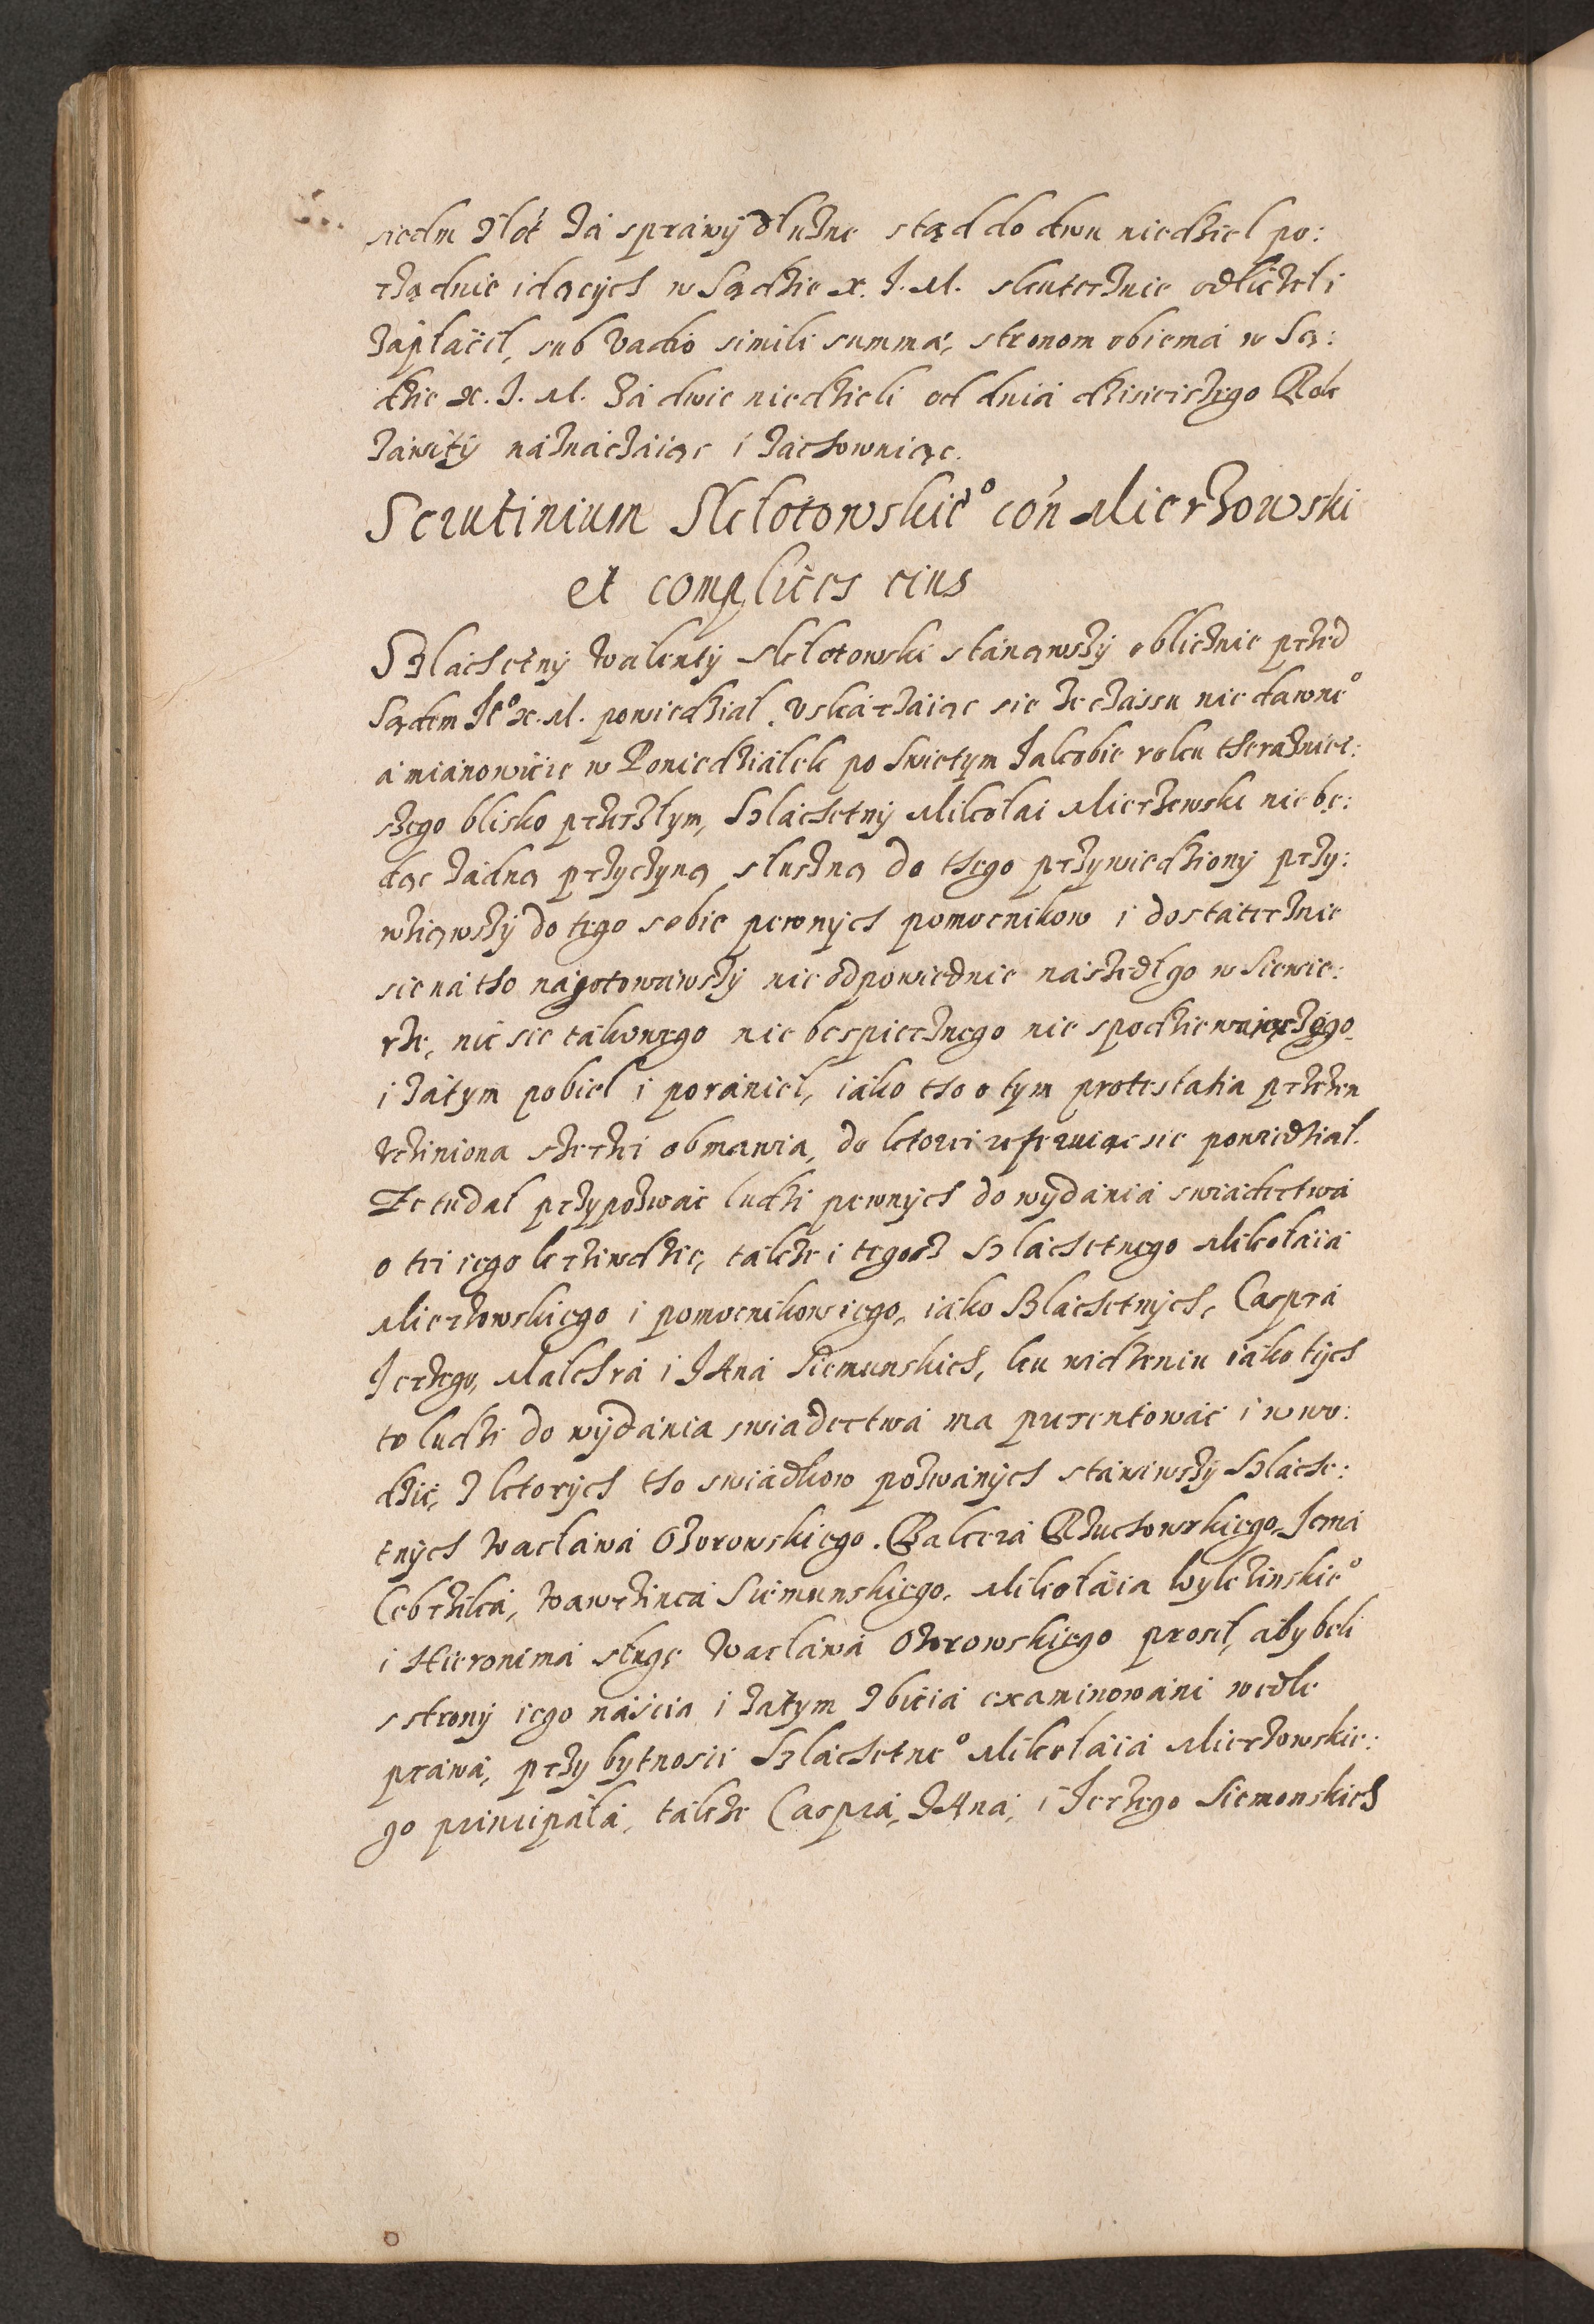 siedm złot́ zá spráwÿ dłużne stąd do dwu niedziel po:
rządnie idącÿch w Sądzie X. J. M. skutecznie odliczel i
zápłáciel, sub vadio simili summá, stronom obiemá w Są:
dzie X. J. M. zá dwie niedzieli od dniá dzisieiszego Rok
záwitÿ náznáczáiąc i záchowuiąc.
Scrutinium Skłotowskie° con Mierzowski
et complices eius
Szláchetnÿ Walentÿ Skłotowski stánąwszÿ obliczniе przed
Sądem Je° X. M. powiedział, Uskárzáiąc sie że czássu nie dawne°
á miánowicie w Poniedziáłek po Swiętym Jakobie roku theráznieí:
szego blisko przeszłym, Szláchetnÿ Mikołai Mierzewski nie bę:
dąc żádną przyczyną słuszną do thego przywiedzionÿ przÿ:
wziąwszÿ do tego sobie pewnÿch pomocnikow i dostátecznie
sie ná tho nágotowawszÿ nie odpowiednie nászedł go w Siewie:
rze, nic sie tákowego nie bespiecznego nie spodziewaiączego
i zátym pobieł i porániel, iáko tho o tym protestatia przezen
Ucziniona szerzei obmawia, do ktorei referuiąc sie powiedział.
Ze tu dał przypozwác ludzi pewnÿch do wÿdániá swiádectwá
o tei iego krziwdzie, tákże i tegosz Szláchetnego Mikołáiá
Mierzowskiego i pomocnikow iego, iáko Szláchetnÿch, Cásprá
Jerzego, Malchrá i JAná Siemunskich, ku widzeniu iáko tÿch
to ludzi do wÿdánia swiadectwá ma prezentowác i wwo:
dzic, z ktorÿch tho swiádkow pozwánÿch stáwiwszÿ Szláche:
tnÿch Wacłáwá Ozorowskiego. Balcerá Rzuchowskiego, Jerná
Cebrzika, Wawrzinca Siemunskiego, Mikołáia Wylezinskie°
i Hieronimá sługę Wacłáwá Ozorowskiego prosieł, ábÿ beli
s stronÿ iego náścia i zatym zbiciá examinowáni wedle
práwá, przÿ bytnosci Szláchetne° Mikołáiá Mierzowskie:
go principáłá, tákże Cásprá, JAná, i Jerzego Siemonskich